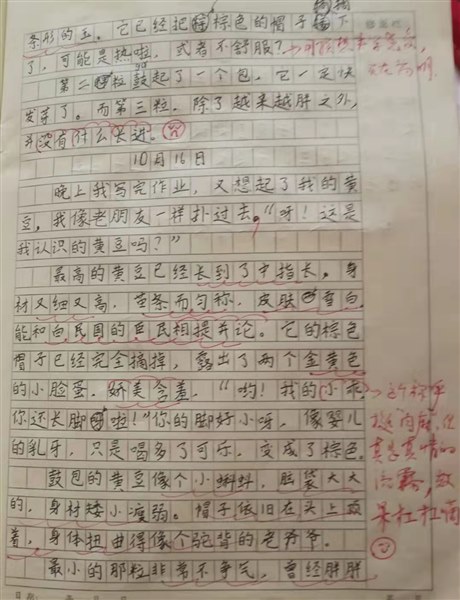 摘摘
条形的玉。它已经把棕色的帽子下
了，可能是热啦，或者不舒服？
第二粒鼓起了一个包，它一定快
发芽了。而第三粒，除了越来越胖之外，
并没有什么长进。
10月16日
晚上我写完作业，又想起了我的黄
豆，我像老朋友一样扑过去。“呀！这是
我认识的黄豆吗？”
最高的黄豆已经长到了中指长，身
材又细又高，苗条而匀称，皮肤雪白，
能和白民国的臣民相提并论。它的棕色
帽子已经完全摘掉，露出了两个金黄色
的小脸蛋，娇美含羞，“哟！我的小乖
你还长脚啦！”你的脚好小呀，像婴儿
的乳牙，只是喝多了可乐，变成了棕色。
鼓包的黄豆像个小蝌蚪，脑袋大大
的，身材矮小瘦弱。帽子依旧在头上顶
着，身体扭曲得像个驼背的老爷爷。
最小的那粒非常不争气，曾经胖胖